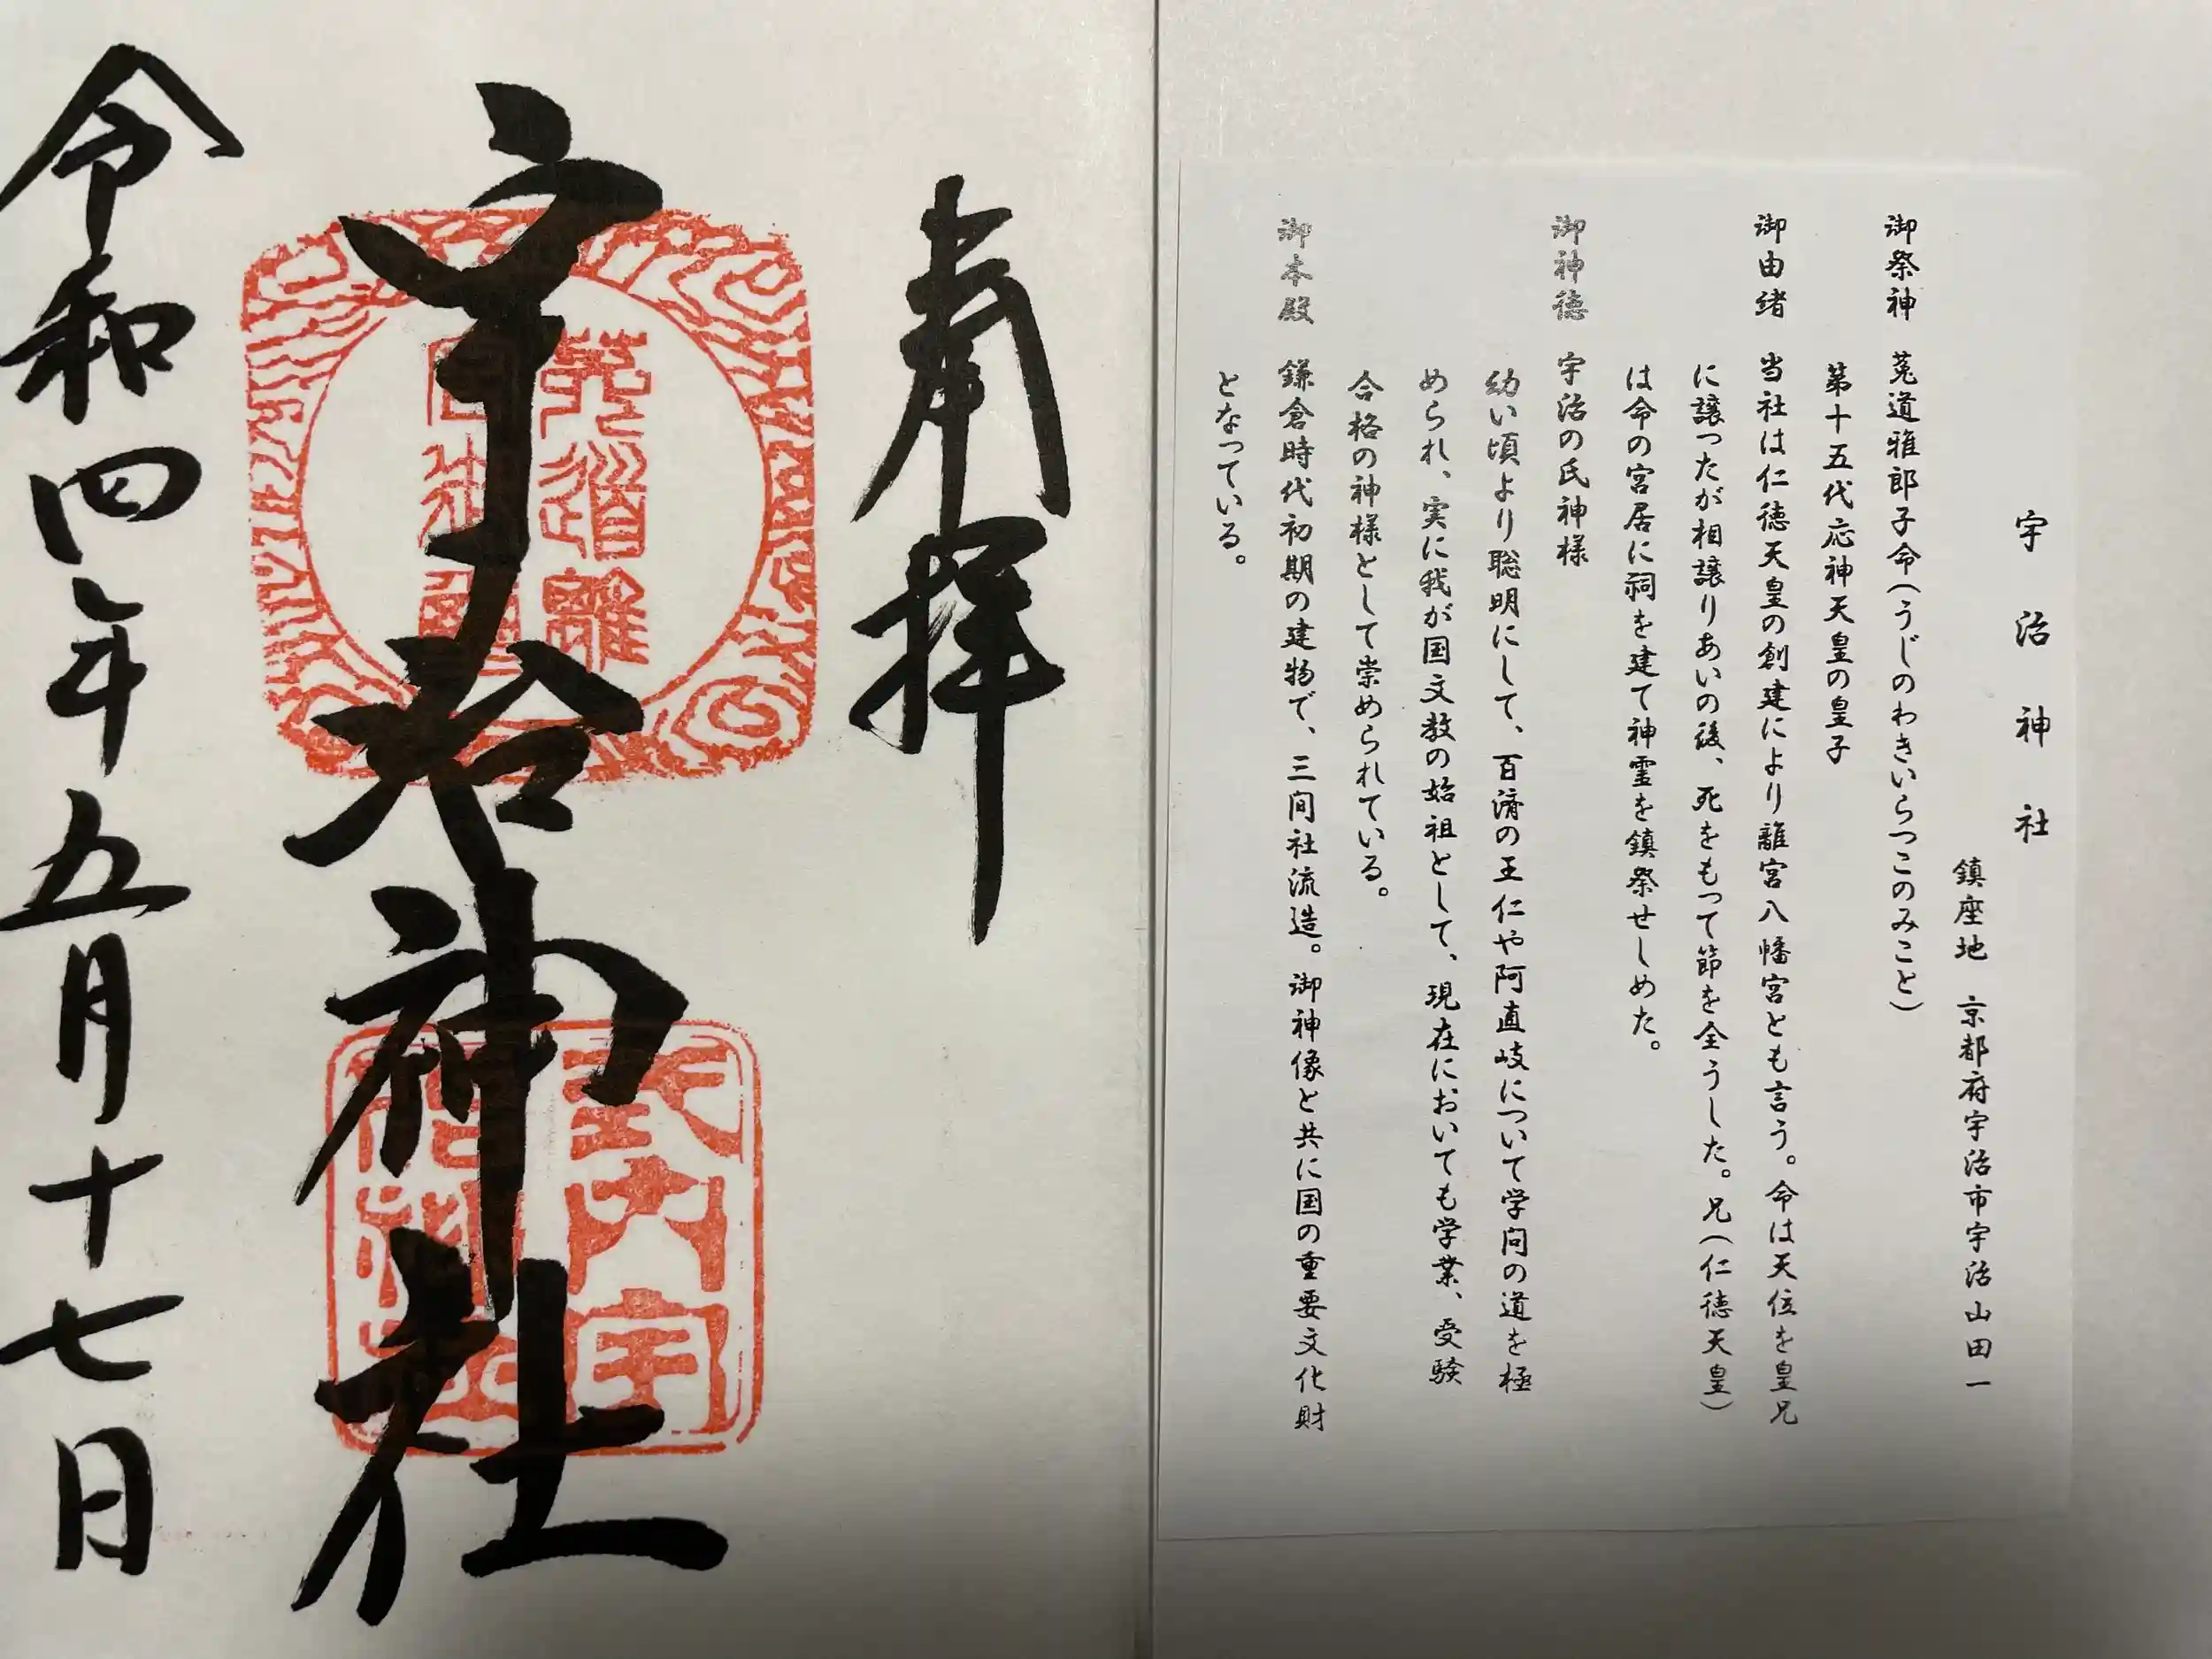 宇治神社
鎮座地 京都府宇治市宇治山田一
御祭神 菟道雅郎子命(うじのわきいらつこのみこと)
第十五代応神天皇の皇子
御由緒 当社は仁徳天皇の創建により離宮八幡宮とも言う。命は天位を皇兄
に譲ったが相譲りあいの後、死をもって節を全うした。兄(仁徳天皇)
は命の宮居に祠を建て神霊を鎮祭せしめた。
御神徳 宇治の氏神様
幼い頃より聡明にして、百済の王仁や阿直岐について学問の道を極
められ、実に我が国文教の始祖として、現在においても学業、受験
合格の神様として崇められている。
御本殿 鎌倉時代初期の建物で、三間社流造。御神像と共に国の重要文化財
となっている。
奉拝
宇治神社
菟道離
令和四年五月十七日